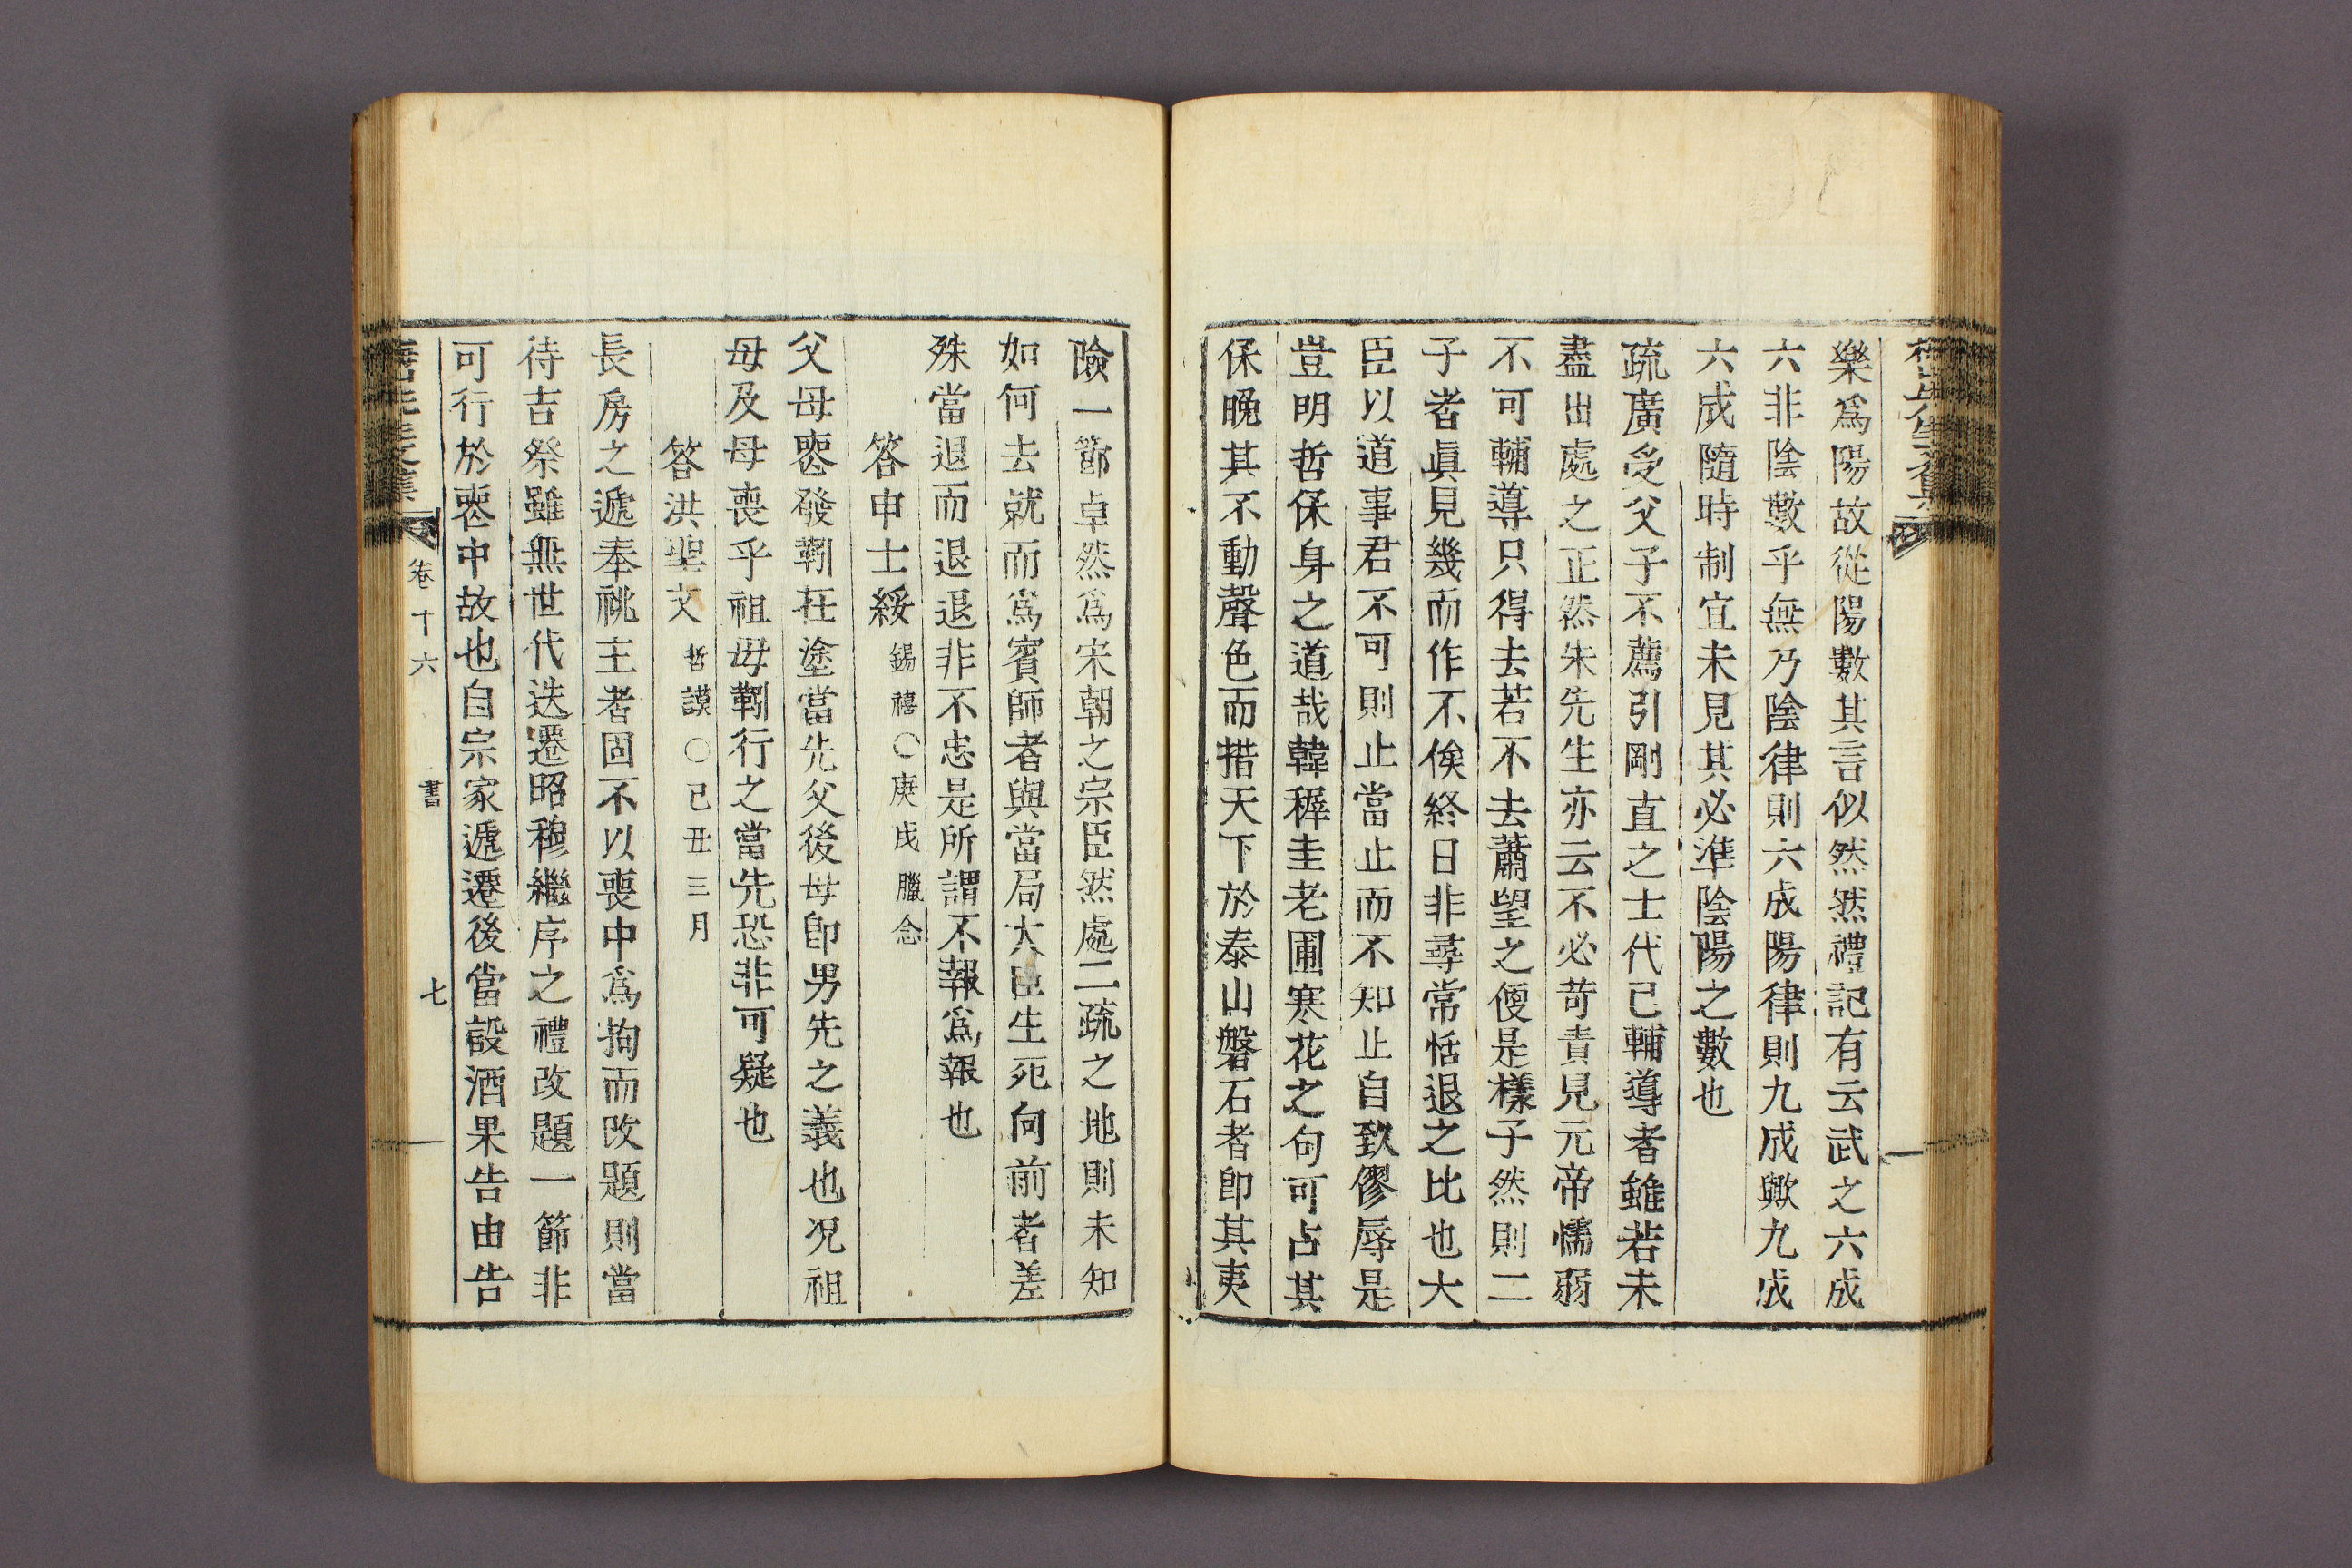 樂爲陽故從陽數其言似然然禮記有云武之六成
六非陰數乎無乃陰律則六成陽律則九成歟九成
六成隨時制宜未見其必準陰陽之數也
疏廣受父子不薦引剛直之士代己輔導者雖若未
盡出處之正然朱先生亦云不必苛責見元帝懦弱
不可輔導只得去若不去蕭望之便是樣子然則二
子者眞見幾而作不俟終日非尋常恬退之比也大
臣以道事君不可則止當止而不知止自致僇辱是
豈明哲保身之道哉韓穉圭老圃寒花之句可占其
保晩其不動聲色而措天下於泰山磐石者卽其夷
險一節卓然爲宋朝之宗臣然處二疏之地則未知
如何去就而爲賓師者與當局大臣生死向前者差
殊當退而退退非不忠是所謂不報爲報也
答申士綏 錫禧○庚戌臘念
父母喪發靷在塗當先父後母卽男先之義也况祖
母及母喪乎祖母靷行之當先恐非可疑也
答洪聖文 哲謨○己丑三月
長房之遞奉祧主者固不以喪中爲拘而改題則當
待吉祭雖無世代迭遷昭穆繼序之禮改題一節非
可行於喪中故也自宗家遞遷後當設酒果告由告
卷十六 書 七